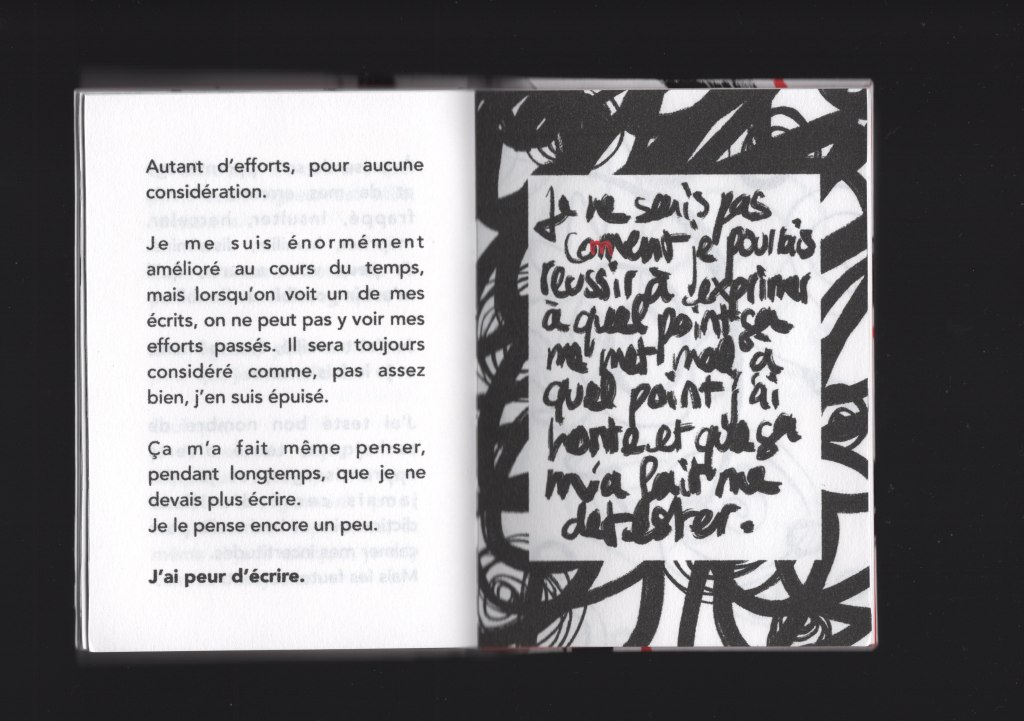 Autant d'efforts, pour aucune
considération.
Je me suis énormément
amélioré au cours du temps,
mais lorsqu'on voit un de mes
écrits, on ne peut pas y voir mes
efforts passés. Il sera toujours
considéré comme, pas assez
bien, j'en suis épuisé.
Ça m'a fait même penser,
pendant longtemps, que je ne
devais plus écrire.
Je le pense encore un peu.
J'ai peur d'écrire.
Je ne sais pas
comment je pourrais
reussir à exprimer
à quel point ça
me met mal, à
quel point j'ai
honte et que ça
m'a fait me
detester.